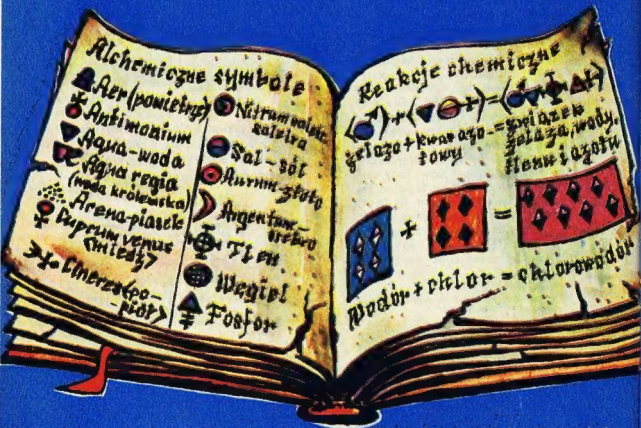 Alchemiczne symbole
Aer (powietrze)
Antimonium
Aqua-woda
Aqua regia
(woda królewska)
Arena-piasek
Cuprum venus
(miedź)
Cineres (po-
piół)
Nitrum
saletra
Sal-sól
Aurum-złoto
Argentum-
srebro
Tlen
Węgiel
Fosfor
Reakcje chemiczne
( )+( )=( )
żelazo + kwas azo- = związek
towy żelaza, wody,
tlenu i azotu
+ =
Wodór + chlor = chlorowodór